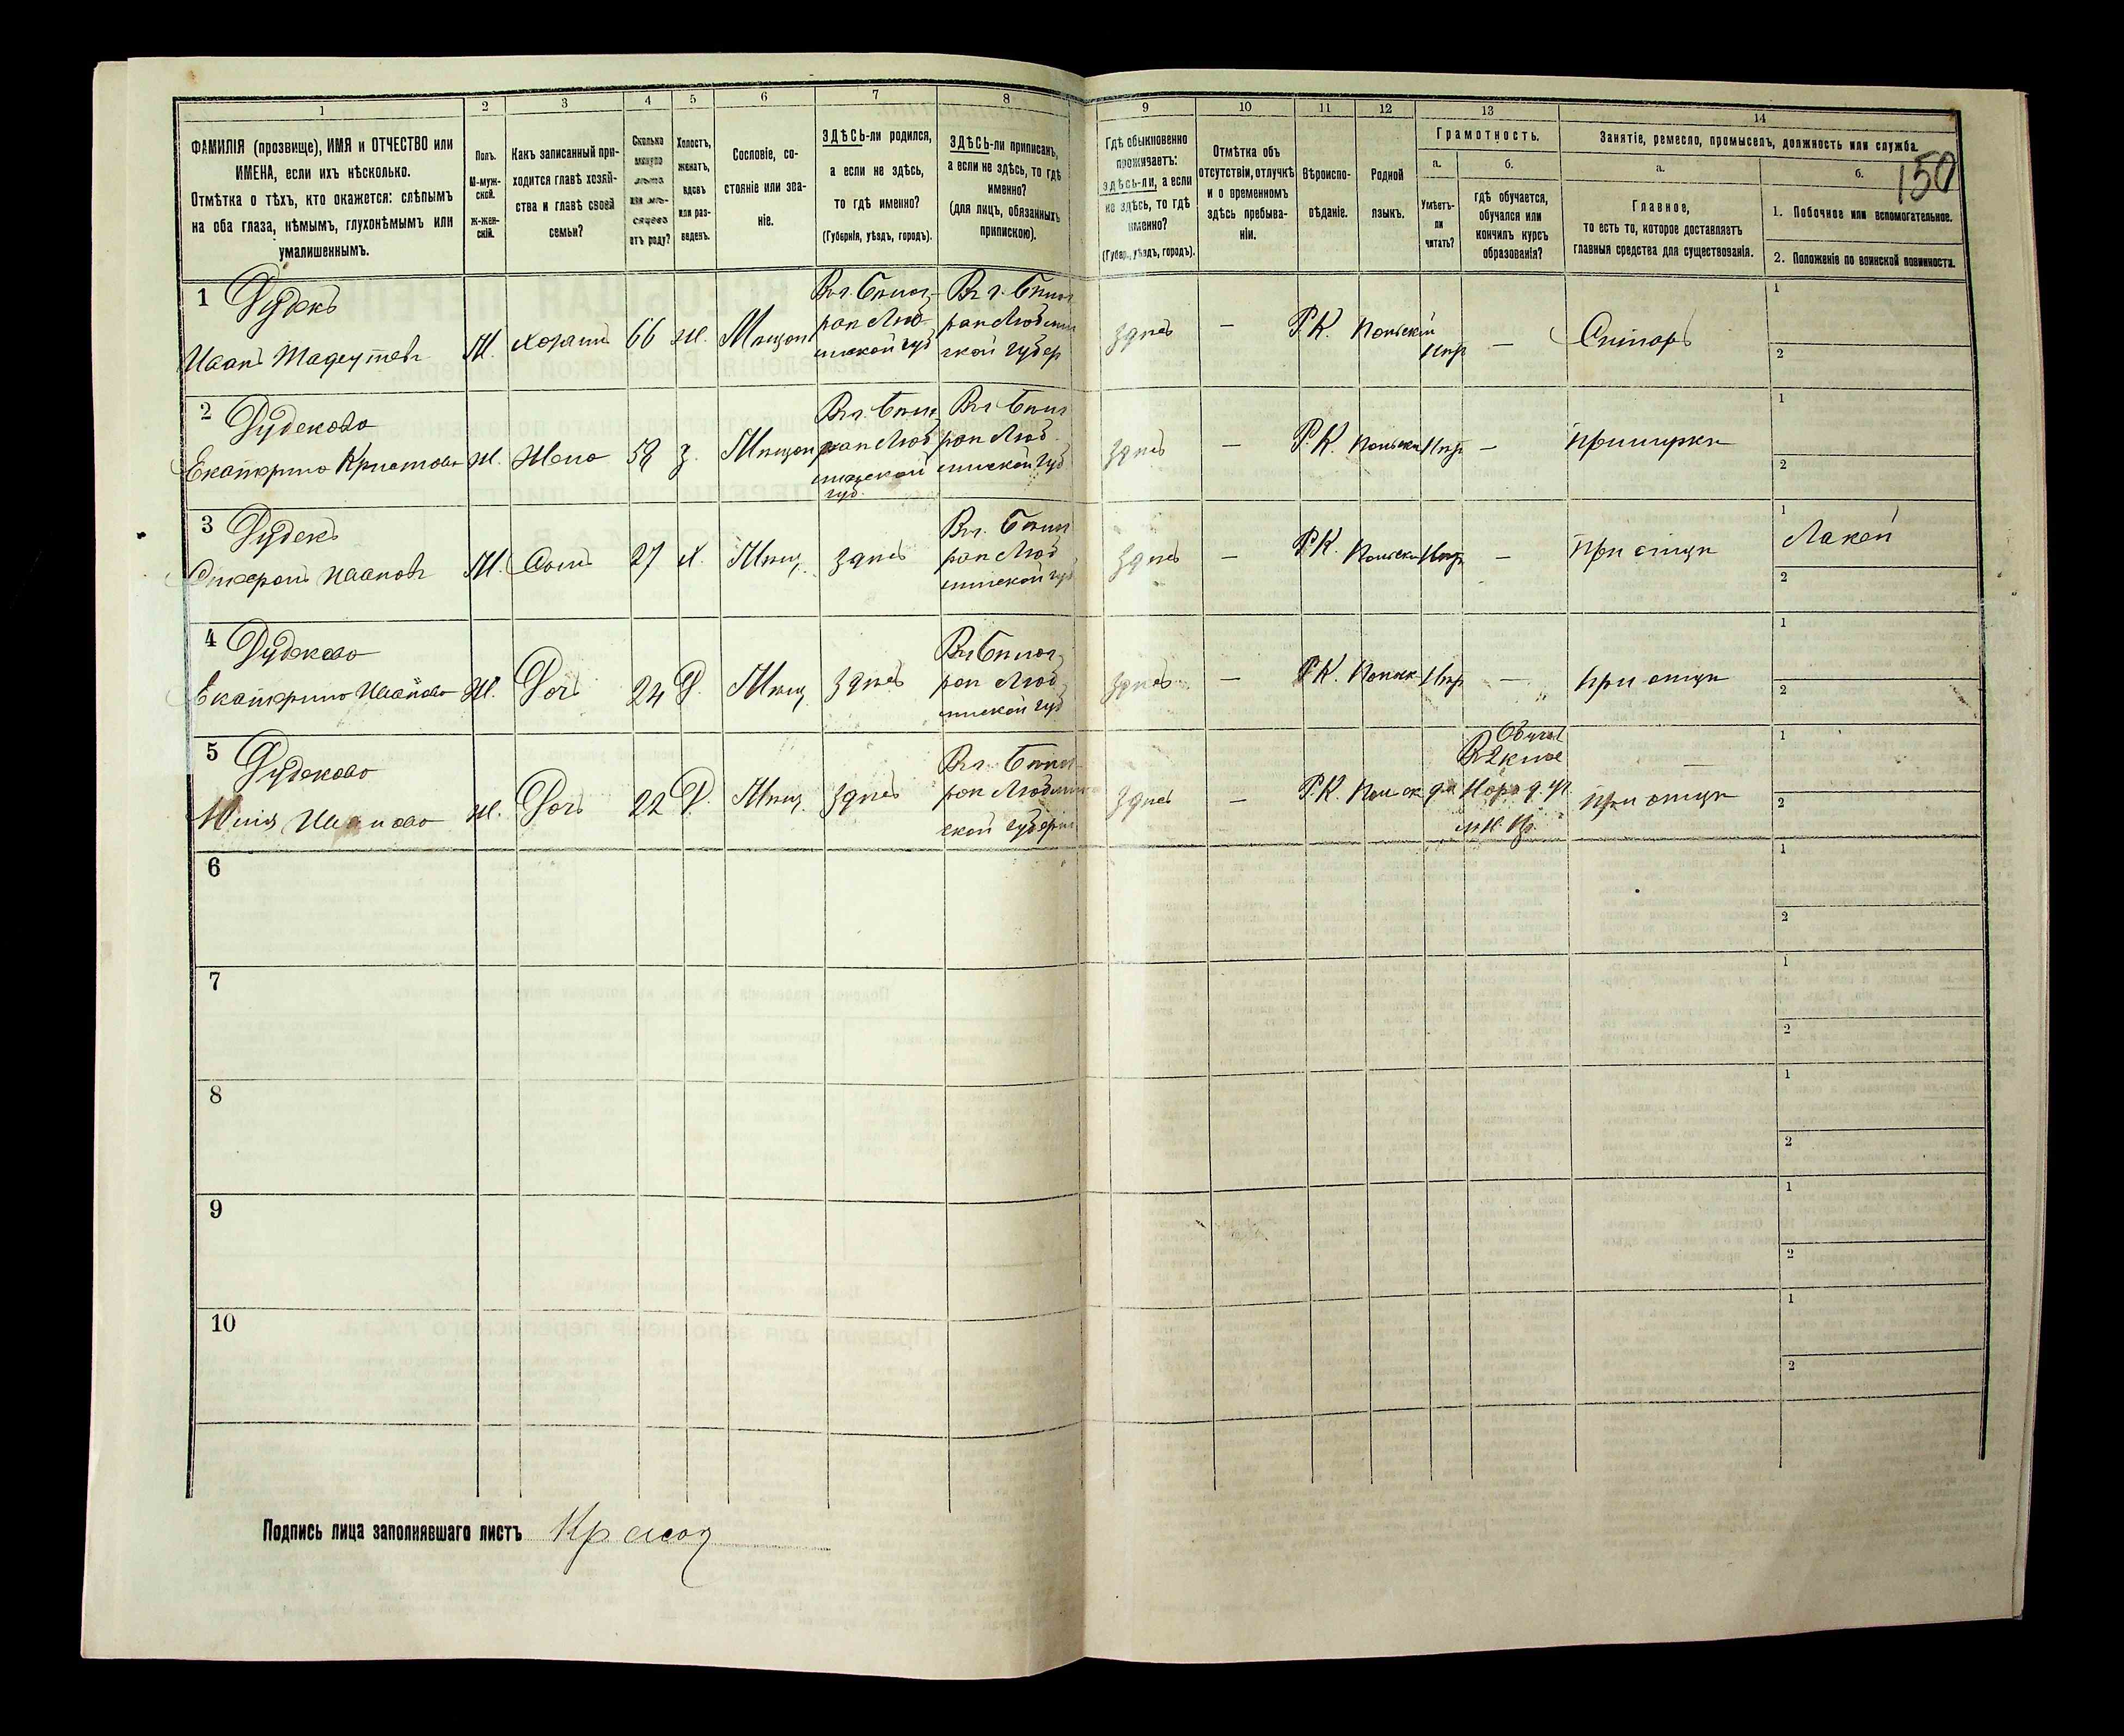 1
2
3
4
5
6
7
8
9
10
11
12
13
14
ФАМИЛІЯ (прозвище), ИМЯ и ОТЧЕСТВО или
ИМЕНА, если ихъ нѣсколько.
Отмѣтка о тѣхъ, кто окажется: слѣпымъ
на оба глаза, нѣмымъ, глухонѣмымъ или
умалишеннымъ.
Полъ.
М-муж-
ской.
Ж-жен-
скій.
Какъ записанный при-
ходится главѣ хозяй-
ства и главѣ своей
семьи?
Сколько
минуло
лѣтъ
или мѣ-
сяцевъ
отъ роду?
Холостъ,
женатъ,
вдовъ
или раз-
веденъ.
Сословіе, со-
стояніе или зва-
ніе.
ЗДѢСЬ-ли родился,
а если не здѣсь,
то гдѣ именно?
(Губернія, уѣздъ, городъ).
ЗДѢСЬ-ли приписанъ,
а если не здѣсь, то гдѣ
именно?
(для лицъ, обязанныхъ
припискою).
Гдѣ обыкновенно
проживаетъ:
здѣсь-ли, а если
не здѣсь, то гдѣ
именно?
(Губер., уѣздъ, городъ).
Отмѣтка объ
отсутствіи, отлучкѣ
и о временномъ
здѣсь пребыва-
ніи.
Вѣроиспо-
вѣданіе.
Родной
языкъ.
Грамотность.
а.
Умѣетъ-
ли
читать?
б.
гдѣ обучается,
обучался или
кончилъ курсъ
образованія?
Занятіе, ремесло, промыселъ, должность или служба.
а.
Главное,
то есть то, которое доставляетъ
главныя средства для существованія.
б.
150
1. Побочное или вспомогательное.
2. Положеніе по воинской повинности.
1 Дудекъ
Иванъ
М.
Хозяинъ
66
ж.
Мѣщан
Вг. Бѣлог-
рап Люб-
линской губ
Вг. Бѣлог
рап Люблин
ской губер
здѣсь
—
Р.К.
Польскій
Нѣт
—
Столяръ
1
2
2 Дудекова
Екатерина
ж.
Жена
58
з.
Мѣщан
Вг. Бѣлг
рап Люб
линской
губ.
Вг Бѣлг
рап Люб
линской губ
здѣсь
—
Р.К.
Польски
Нѣт
—
1
2
3 Дудекъ
Ивановъ
М.
Сынъ
27
х.
Мѣщ.
здѣсь
Вг. Бѣлг
рап Люб
линской губ
здѣсь
—
Р.К.
Польски
Нѣт
—
при отцѣ
1
Лакей
2
4 Дудекова
Екатерина Иванова
ж.
Дочь
24
Д.
Мѣщ
здѣсь
Вг Бѣлог
рап Люб
линской губ
здѣсь
—
Р.К.
Польск
Нѣт
—
при отцѣ
1
2
5 Дудекова
Юлія Иванова
ж.
Дочь
22
Д.
Мѣщ.
здѣсь
Вг. Бѣлг
рап Люблин
ской губерн
здѣсь
—
Р.К.
Польск
да
Обучал
В 2 клас
Народ. уч
при отцѣ
1
2
6
1
2
7
1
2
8
1
2
9
1
2
10
1
2
Подпись лица заполнявшаго листъ